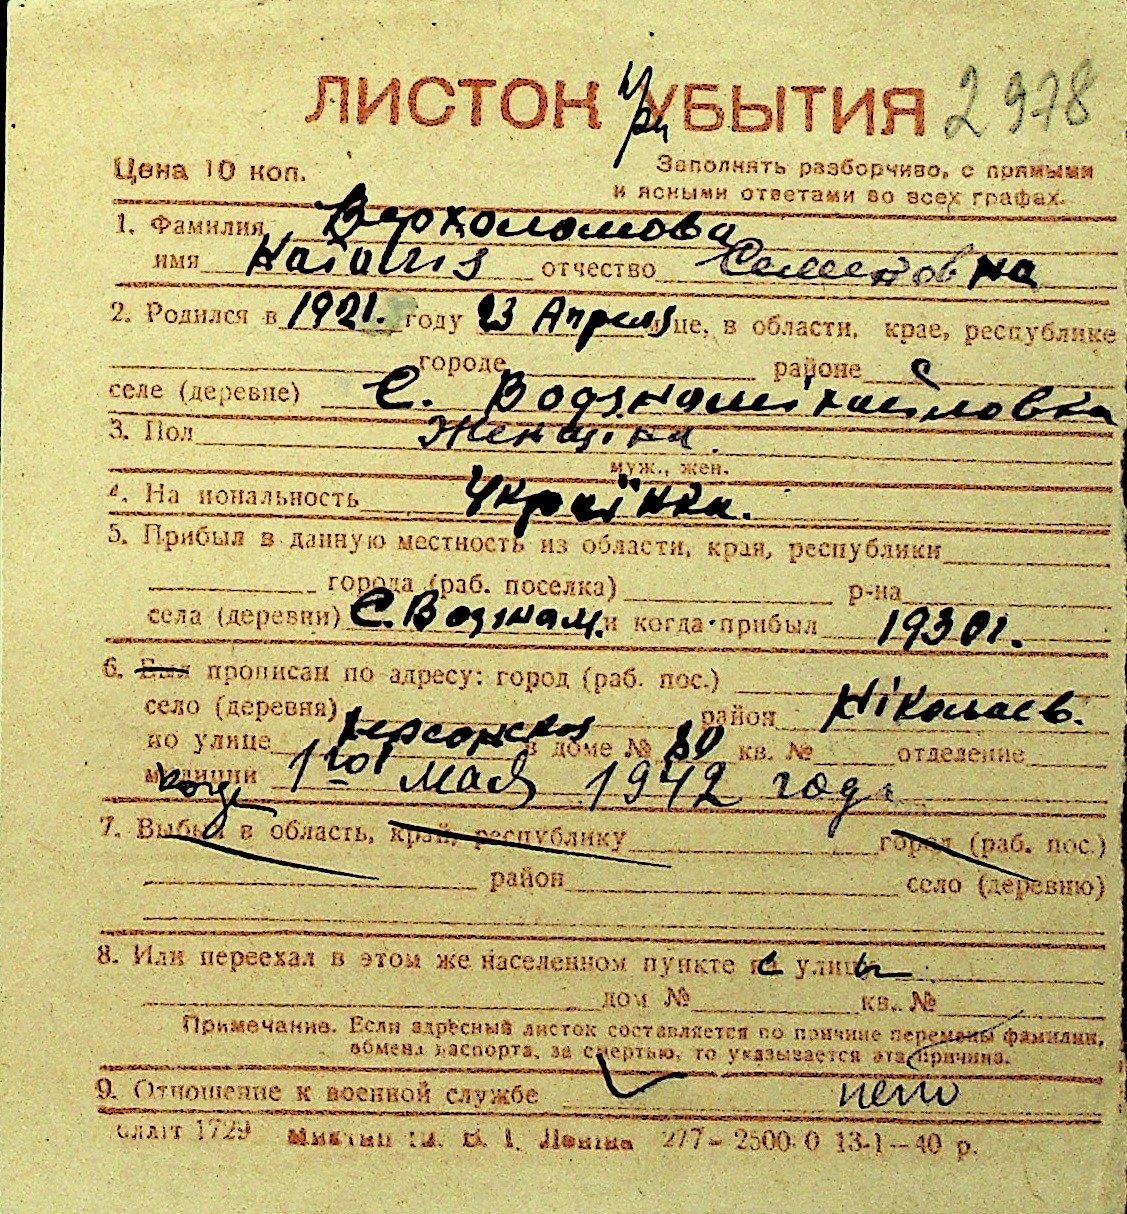 ЛИСТОК УБЫТИЯ 2978
При
Цена 10 коп. Заполнять разборчиво, с прямыми
и ясными ответами во всех графах.
1. Фамилия Верхоломова
имя отчество Семеновна
2. Родился в 1921. году 23 Апреля м-це, в области, крае, республике
городе районе
селе (деревне) С.
3. Пол Женщіна
муж., жен.
4. На иональность Украінка.
5. Прибыл в данную местность из области, края, республики
города (раб. поселка) р-на
села (деревни) С. Вознам. и когда прибыл
6. Был прописан по адресу: город (раб. пос.)
село (деревня) район Ніколаев.
по улице Херсонская в доме № 80 кв. № отделение
милиции 1го мая 1942 года
когда
7. Выбыл в область, край, республику город (раб. пос.)
район село (деревню)
8. Или переехал в этом же населенном пункте с улицы
дом № кв. №
Примечание. Если адресный листок составляется по причине перемены фамилии,
обмена паспорта, за смертью, то указывается эта причина.
9. Отношение к военной службе нет
1729 277–2500.0 13-1–40 р.